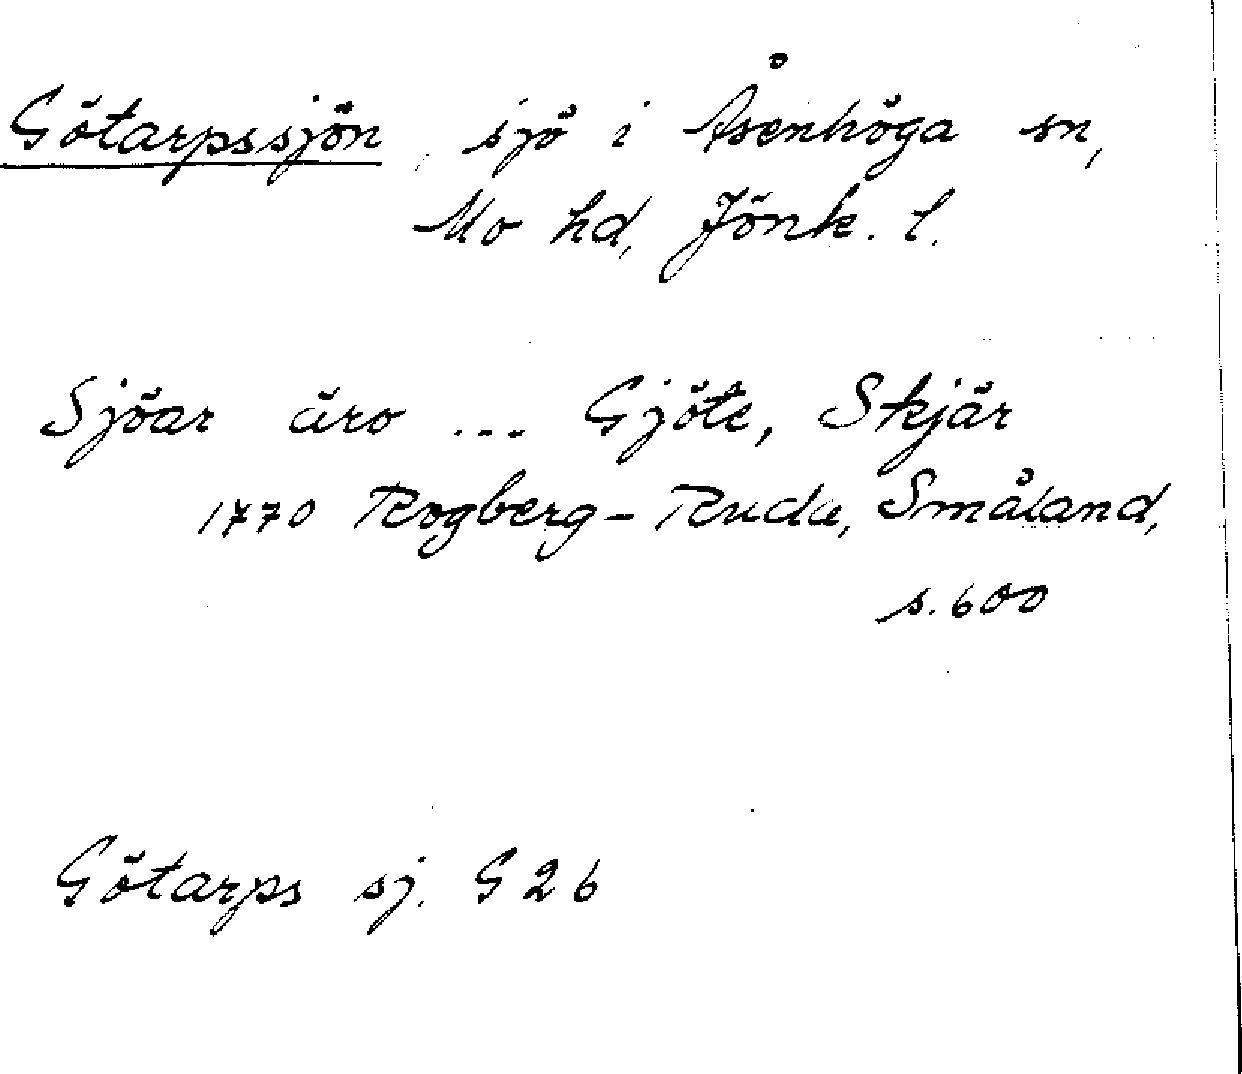 Götarpssjön, sjö i Åsenhöga sn,
Mo hd, Jönk. l.
Sjöar äro ... Gjöte, Skjär
1770 Rogberg-Ruda, Småland,
s. 600
Götarps sj. G 26